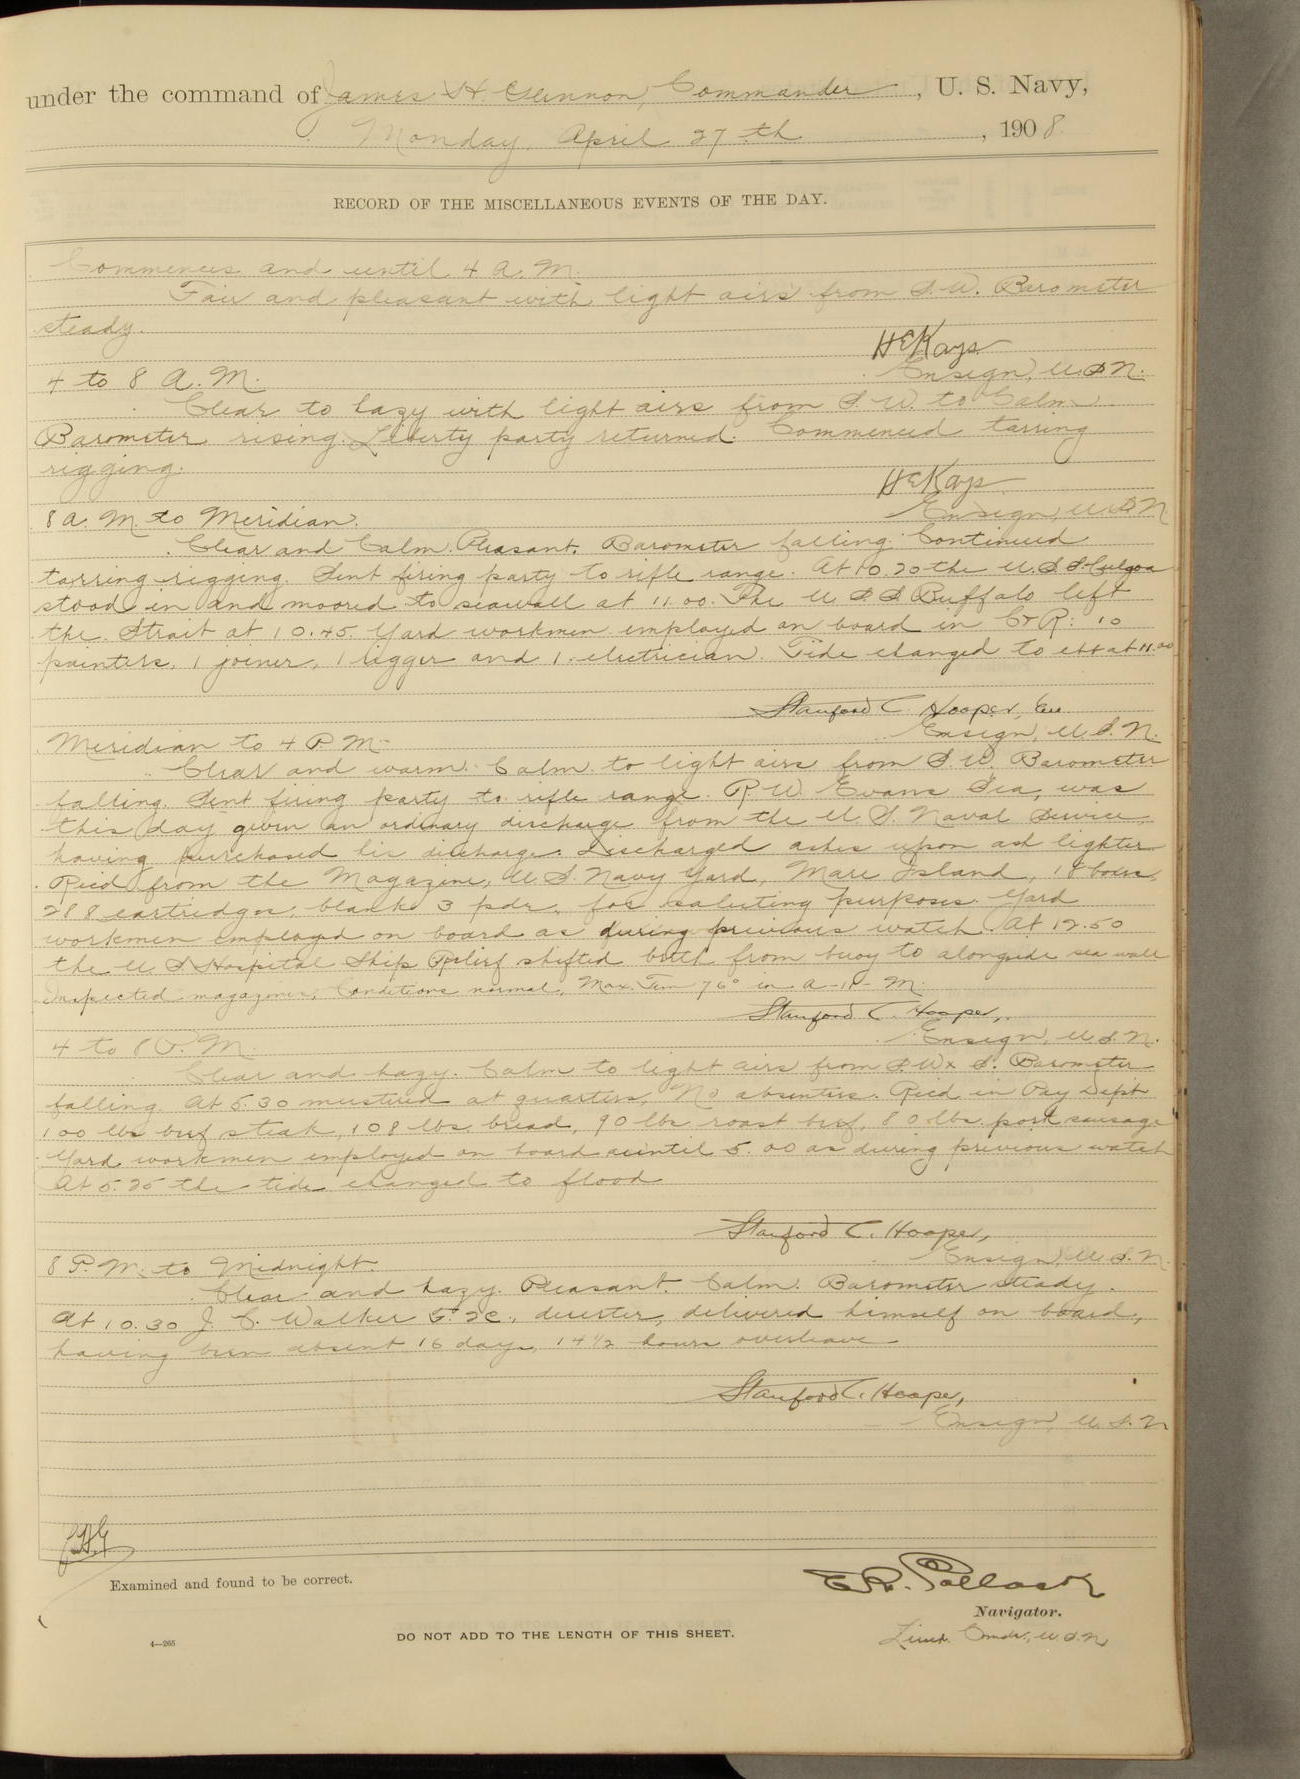 under the command of James H. Glennon, Commander, U. S. Navy,
Monday, April 27th, 1908.
RECORD OF THE MISCELLANEOUS EVENTS OF THE DAY.
Commences and until 4 A. M.
Fair and pleasant with light airs from S. W. Barometer
steady.
H E Kays
Ensign, U.S.N.
4 to 8 A. M.
Clear to hazy with light airs from S. W. to Calm.
Barometer rising. Liberty party returned. Commenced tarring
rigging.
H E Kays
Ensign, U.S.N.
8 A. M. to Meridian.
Clear and Calm. Pleasant. Barometer falling. Continued
tarring rigging. Sent firing party to rifle range. At 10.20 the U.S.S. Culgoa
stood in and moored to seawall at 11.00. The U.S.S. Buffalo left
the Strait at 10.45. Yard workmen employed on board in C&R: 10
painters, 1 joiner, 1 rigger and 1 electrician. Tide changed to ebb at 11.00
Stanford C. Hooper,
Ensign, U.S.N.
Meridian to 4 P. M.
Clear and warm. Calm to light airs from S. W. Barometer
falling. Sent firing party to rifle range. R. W. Evans Sea, was
this day given an ordinary discharge from the U. S. Naval Service,
having purchased his discharge. Discharged ashes upon ash lighter
Rec'd from the Magazine, U S Navy Yard, Mare Island, 18 boxes,
288 cartridges, blank 3 pdr. for saluting purposes. Yard
workmen employed on board as during previous watch. At 12.50
the U S Hospital Ship Relief shifted berth from buoy to alongside sea wall
Inspected magazines, Conditions normal, Max. Tem 76° in A-11-M.
Stanford C. Hooper,
Ensign, U.S.N.
4 to 8 P. M.
Clear and hazy. Calm to light airs from S.W x S. Barometer
falling. At 5.30 mustered at quarters, No absentees. Rec'd in Pay Dep't
100 lbs beef steak, 108 lbs. bread, 90 lbs roast beef, 80 lbs. pork sausage
Yard workmen employed on board until 5.00 as during previous watch
At 5.25 the tide changed to flood
Stanford C. Hooper,
Ensign, U.S.N.
8 P. M. to Midnight.
Clear and hazy. Pleasant. Calm. Barometer steady.
At 10.30 J. C. Walker F. 2c., deserter, delivered himself on board,
having been absent 16 days, 14 1/2 hours overleave
Stanford C. Hooper,
Ensign, U.S.N
JHG
Examined and found to be correct.
E R. Pollock
Navigator.
Lieut. Comdr., U.S.N
4—265
DO NOT ADD TO THE LENGTH OF THIS SHEET.